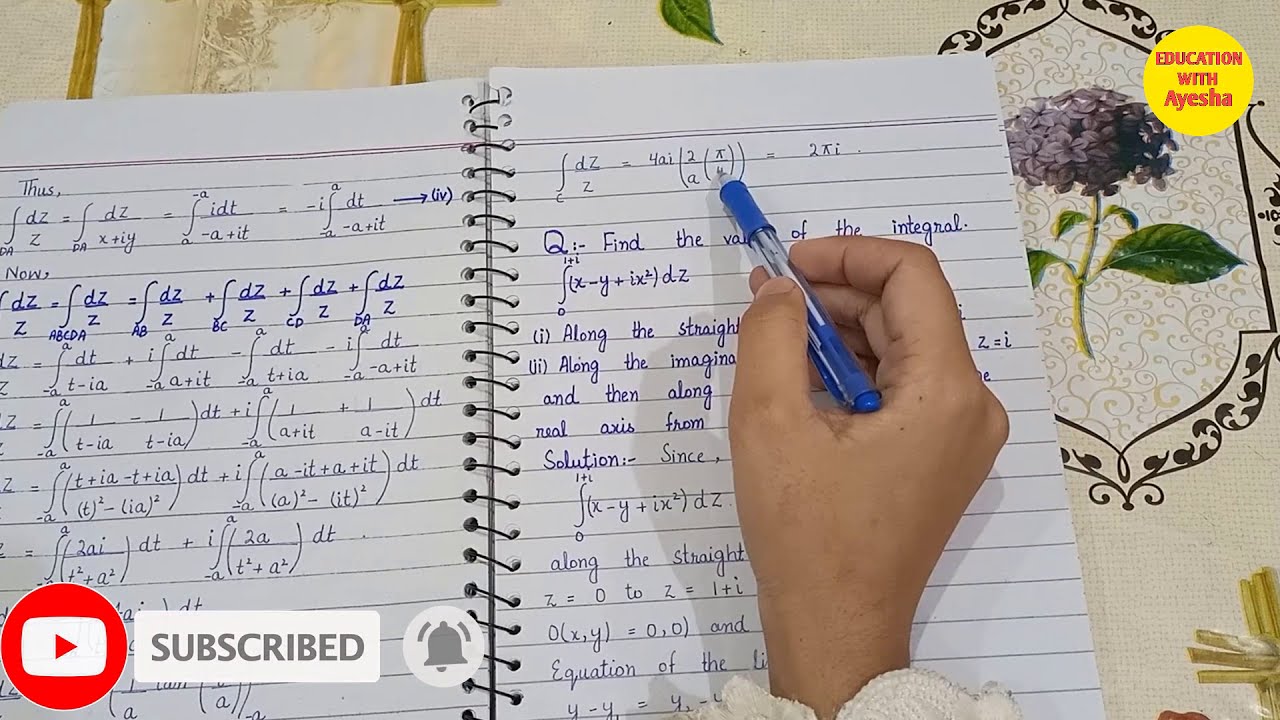 Thus,
∫DA dz/z = ∫DA dz/x+iy = ∫a^-a idt/-a+it = -i∫-a^a dt/-a+it → (iv)
Now,
∫ dz/z = ∫ABCDA dz/z = ∫AB dz/z + ∫BC dz/z + ∫CD dz/z + ∫DA dz/z
dz/z = ∫-a^a dt/t-ia + i∫-a^a dt/a+it - ∫-a^a dt/t+ia - i∫-a^a dt/-a+it
dz/z = ∫-a^a (1/t-ia - 1/t-ia) dt + i∫-a^a (1/a+it + 1/a-it) dt
dz/z = ∫-a^a (t+ia-t+ia/(t)²-(ia)²) dt + i∫-a^a (a-it+a+it/(a)²-(it)²) dt
z = ∫-a^a (2ai/t²+a²) dt + i∫-a^a (2a/t²+a²) dt .
4ai dt
∫c dz/z = 4ai(2/a(π/4)) = 2πi .
Q:- Find the of the integral.
∫0^1+i (x-y+ix²) dz
(i) Along the straight i
(ii) Along the z=i
and then along
real axis from
Solution:- Since,
∫0^1+i (x-y+ix²) dz
along the straight
z = 0 to z = 1+i
O(x,y) = 0,0) and
Equation of the
y-y₁ =
EDUCATION
WITH
Ayesha
SUBSCRIBED